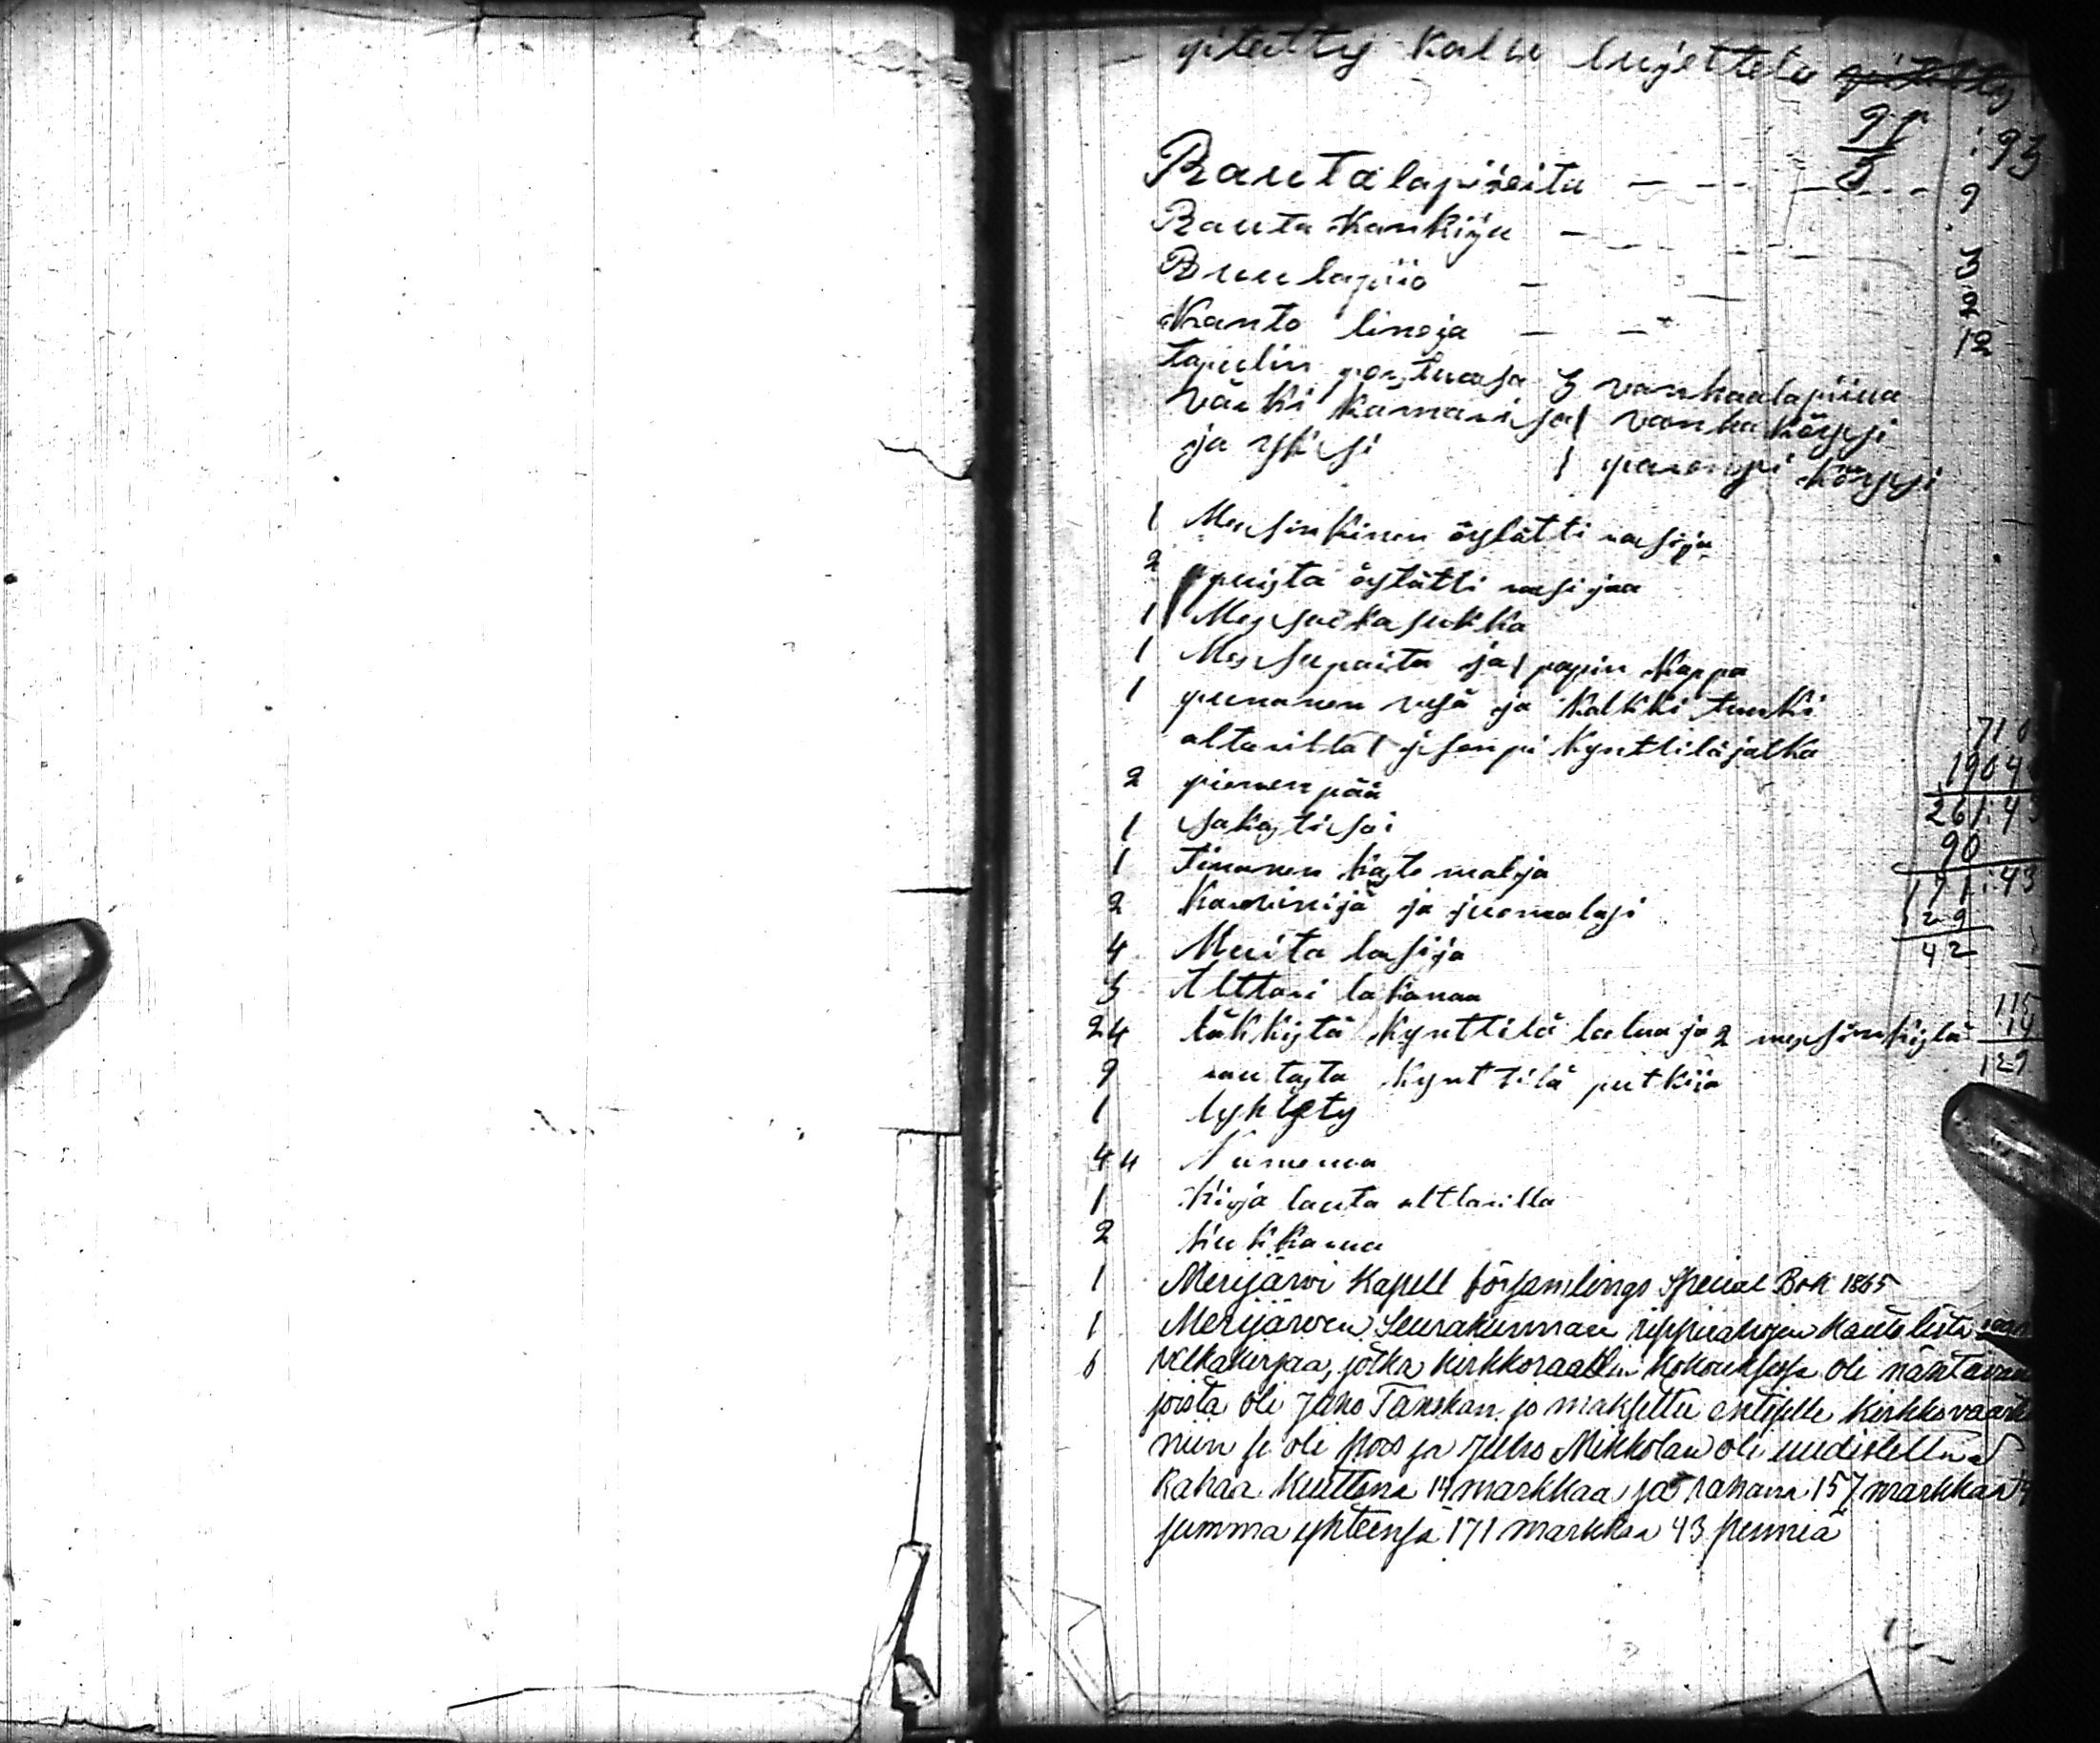 pitetty Kalu lujettelo
91
3
:93
Rautalapijoita — — — 9
Rauta Kankija — 3
Puulapiio — 2
Kanto linoja — — 12
tapulin porstuasa 3 vanhaalapiiua
väriki kamarisa 1 vanha köysi
ja yksi 1 parempi köysi
1 Messinkinen öylätti rasija
2 puista öylätti rasijaa
1 Messu kasukka
1 Messupaita ja 1 papin Kappa
1 punanen vesä ja Kalkki tuuki
altarilla 1 isonpi Kynttiläjalka
2 pienenpää
1 sakastisai
1 Tinanen kaste malja
2 Karvinijä ja juomalasi
4 Muita lasija
3 Alttari lakanaa
24 läkkistä Kynttilä laluaja 2 messinkistä
9 rautasta Kynttilä putkija
1 lyhtyty
44 Numeroa
1 Kirja lauta alttarilla
2 Kukkarua
1 Merijärwi Kapell församlings Special Bok 1865
1 Merijärwen Seurakunnan rippiwakojen kantolista
6 velkakirjaa, jotka kirkkoraadin kokouksessa oli
joista oli Jaho Tanskan jo maksettu entiselle
niin se oli pois ja Juho Mikkolan oli uudistettu
Rahaa kuittina 14 markkaa ja rahana 157 markkaa
summa yhteensä 171 markkaa 43 penniä
71 0
190:4
261:43
90
171:43
129
42
115
14
129
1